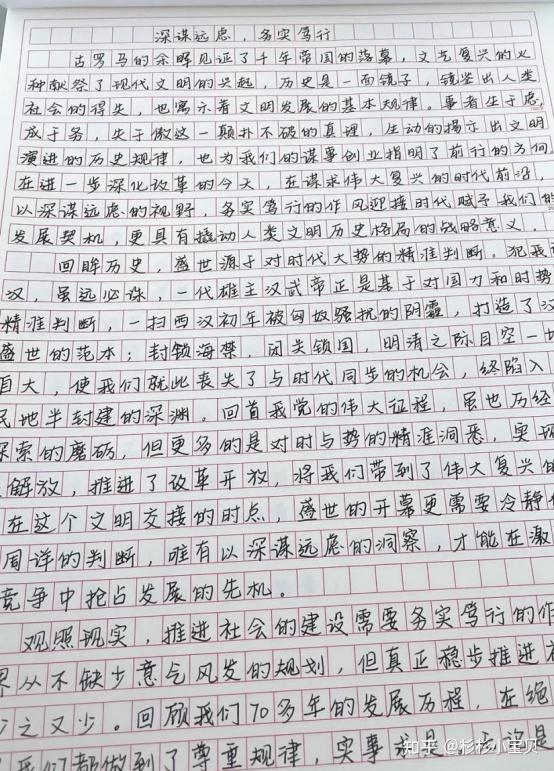 深谋远虑，务实笃行
古罗马的余晖见证了千年帝国的落幕，文艺复兴的火
种献祭了现代文明的兴起，历史是一面镜子，镜鉴出人类
社会的得失，也寓示着文明发展的基本规律。事者生于虑，
成于务，失于傲这一颠扑不破的真理，生动的揭示出文明
演进的历史规律，也为我们的谋事创业指明了前行的方向，
在进一步深化改革的今天，在谋求伟大复兴的时代前沿，
以深谋远虑的视野，务实笃行的作风迎接时代赋予我们的
发展契机，更具有撬动人类文明历史格局的战略意义。
回眸历史，盛世源于对时代大势的精准判断。犯我
汉，虽远必诛，一代雄主汉武帝正是基于对国力和时势
精准判断，一扫西汉初年被匈奴骚扰的阴霾，打造了汉
盛世的范本；封锁海禁，闭关锁国，明清之际目空一切
自大，使我们就此丧失了与时代同步的机会，终陷入
民地半封建的深渊。回首我党的伟大征程，虽也历经
探索的磨砺，但更多的是对时与势的精准洞悉，实现
解放，推进了改革开放，将我们带到了伟大复兴的
在这个文明交接的时点，盛世的开幕更需要冷静
周详的判断，唯有以深谋远虑的洞察，才能在激
竞争中抢占发展的先机。
观照现实，推进社会的建设需要务实笃行的作
界从不缺少意气风发的规划，但真正稳步推进
之又少。回顾我们70多年的发展历程，在绝
我们都做到了尊重规律，实事求是
知乎 @杉杉小宝贝